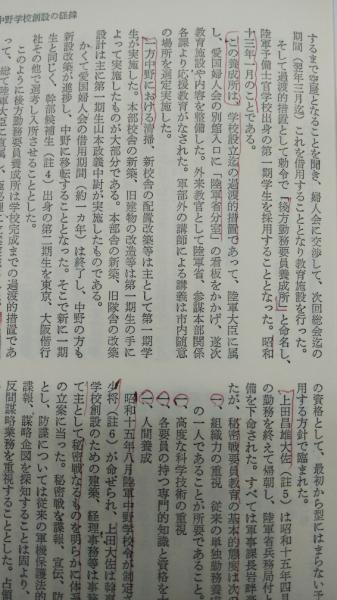 中野学校創設の経緯
するまで空屋となることを聞き、婦人会に交渉して、次回総会迄の
期間(翌年三月迄)これを借用することとなり教育施設を行った。
そして過渡的措置として勅令で「後方勤務要員養成所」と命名し、
陸軍予備士官学校出身の第一期学生を採用することとなった。昭和
十三年一月のことである。
この養成所は、学校設立迄の過渡的措置であって、陸軍大臣に属
し、愛国婦人会の別館入口に「陸軍省分室」の看板をかかげ、逐次
教育施設や内容を整備した。外来教官として陸軍省、参謀本部関係
各課より応援教育がなされた。軍部外の講師による講義は市内随意
の場所を選定実施した。
一方中野における清掃、新校舎の配置改築等は主として第一期学
生が実施した。本部校舎の新築、旧建物の改造等は第一期生の手に
よって実施したものが大部分である。本部舎の新築、旧隊舎の改築
設計は主に第一期生山本政義中尉が実施したものである。
かくて愛国婦人会の借用期間(約一ヵ年)は終了し、中野の方も
新設改築が進捗し、中野に移転することとなった。そこで新に一期
生と同じく、幹部候補生(註4)出身の第二期生を東京、大阪偕行
社その他で選考し入所させることとした。
このように後方勤務要員養成所は学校完成までの過渡的措置であ
って、総て陸軍大臣に直属し、
の資格として、最初から型にはまらない
用する方針で臨まれた。
上田昌雄大佐(註5)は昭和十五年四月
の勤務を終えて帰朝し、陸軍省兵務局付
備を下命された。すべては軍事課長岩畔
たが、秘密戦要員教育の基本的態度は次
一、組織力の重視 従来の単独勤務
の一人であることが所要であること
一、高度な科学技術の重視
一、各要員の持つ専門的知識と資格を
一、人間養成
昭和十五年八月陸軍中野学校令が制定
少将(註6)が命ぜられ、上田大佐は幹事
学校創設のための建築、経理事務等は事
て主として秘密戦なるものを明らかに体
の立案に当った。秘密戦を諜報、宣伝、防
とし、防諜については従来の軍機保護法的
諜報、謀略企図を探知することは固より、
反間謀略業務を重視することとした。占領